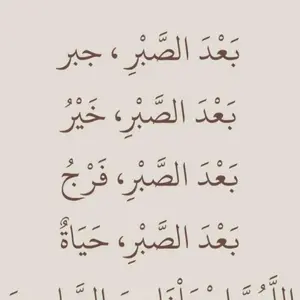 بَعْدَ الصَّبْرِ ، جبر
بَعْدَ الصَّبْرِ، خَيْرُ
بَعْدَ الصَّبْرِ، فَرْجُ
بَعْدَ الصَّبْرِ، حَيَاةٌ